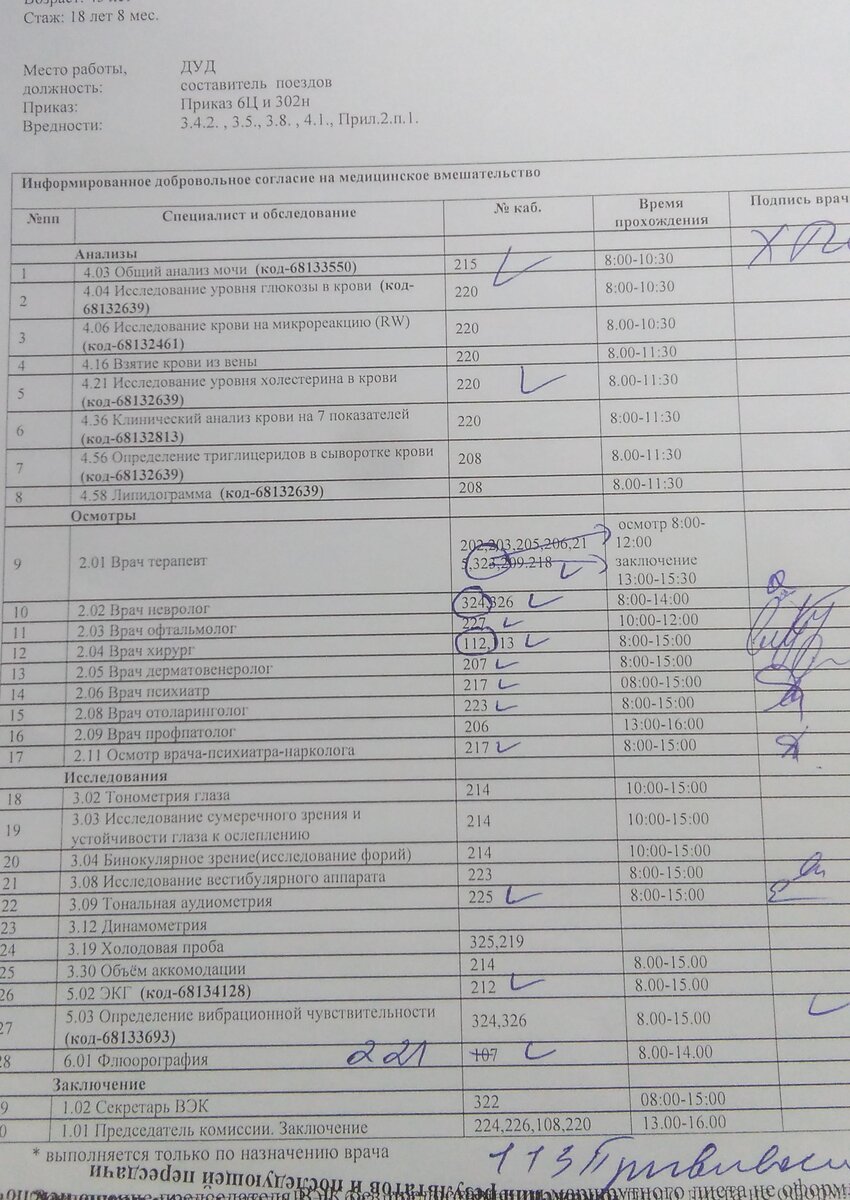 Стаж: 18 лет 8 мес.
Место работы, ДУД
должность: составитель поездов
Приказ: Приказ 6Ц и 302н
Вредности: 3.4.2. , 3.5., 3.8. , 4.1., Прил.2.п.1.
Информированное добровольное согласие на медицинское вмешательство
№пп Специалист и обследование № каб. Время прохождения Подпись врач
Анализы
1 4.03 Общий анализ мочи (код-68133550) 215 8:00-10:30
2 4.04 Исследование уровня глюкозы в крови (код-68132639) 220 8:00-10:30
3 4.06 Исследование крови на микрореакцию (RW) (код-68132461) 220 8.00-10:30
4 4.16 Взятие крови из вены 220 8.00-11:30
5 4.21 Исследование уровня холестерина в крови (код-68132639) 220 8.00-11:30
6 4.36 Клинический анализ крови на 7 показателей (код-68132813) 220 8:00-11:30
7 4.56 Определение триглицеридов в сыворотке крови (код-68132639) 208 8.00-11:30
8 4.58 Липидограмма (код-68132639) 208 8.00-11:30
Осмотры
9 2.01 Врач терапевт 202,203,205,206,215,323,209.218 осмотр 8:00-12:00 заключение 13:00-15:30
10 2.02 Врач невролог 324,326 8:00-14:00
11 2.03 Врач офтальмолог 227 10:00-12:00
12 2.04 Врач хирург 112,113 8:00-15:00
13 2.05 Врач дерматовенеролог 207 8:00-15:00
14 2.06 Врач психиатр 217 08:00-15:00
15 2.08 Врач отоларинголог 223 8:00-15:00
16 2.09 Врач профпатолог 206 13:00-16:00
17 2.11 Осмотр врача-психиатра-нарколога 217 8:00-15:00
Исследования
18 3.02 Тонометрия глаза 214 10:00-15:00
19 3.03 Исследование сумеречного зрения и устойчивости глаза к ослеплению 214 10:00-15:00
20 3.04 Бинокулярное зрение(исследование форий) 214 10:00-15:00
21 3.08 Исследование вестибулярного аппарата 223 8:00-15:00
22 3.09 Тональная аудиометрия 225 8:00-15:00
23 3.12 Динамометрия
24 3.19 Холодовая проба 325,219
25 3.30 Объём аккомодации 214 8.00-15.00
26 5.02 ЭКГ (код-68134128) 212 8.00-15.00
27 5.03 Определение вибрационной чувствительности (код-68133693) 324,326 8.00-15.00
28 6.01 Флюорография 221 107 8.00-14.00
Заключение
9 1.02 Секретарь ВЭК 322 08:00-15:00
0 1.01 Председатель комиссии. Заключение 224,226,108,220 13.00-16.00
* выполняется только по назначению врача
113
результатов и последующей пересдачи